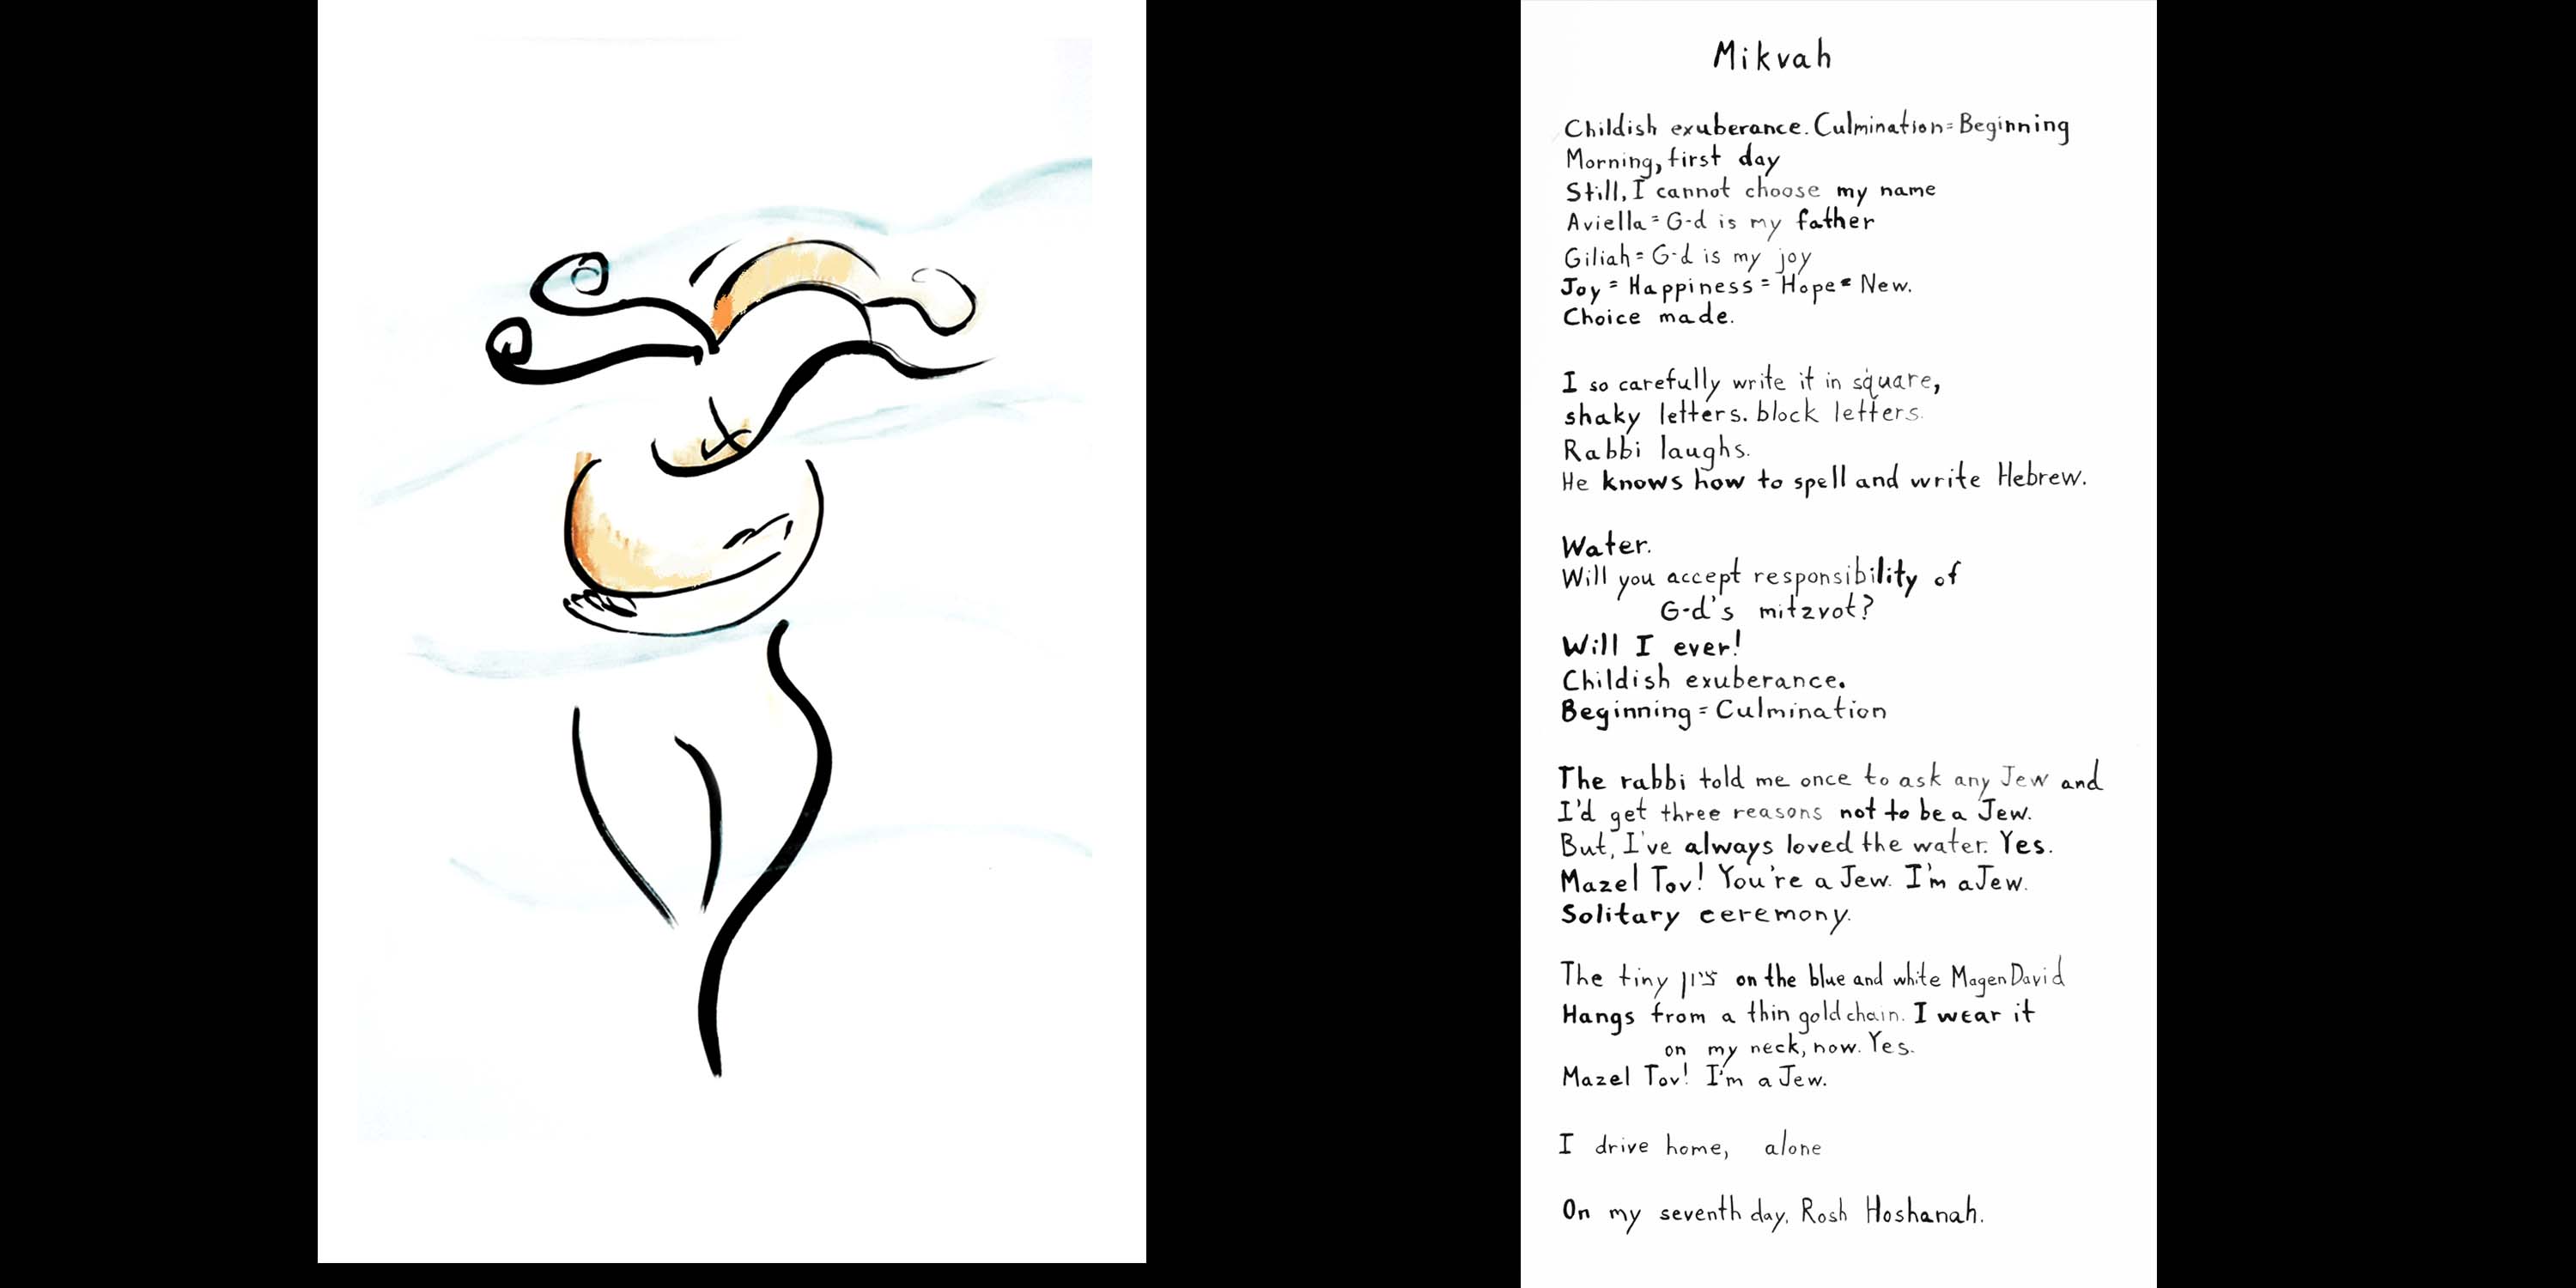 Mikvah
Childish exuberance. Culmination = Beginning
Morning, first day
Still, I cannot choose my name
Aviella = G-d is my father
Giliah = G-d is my joy
Joy = Happiness = Hope = New.
Choice made.
I so carefully write it in square,
shaky letters. block letters.
Rabbi laughs.
He knows how to spell and write Hebrew.
Water.
Will you accept responsibility of
G-d's mitzvot?
Will I ever!
Childish exuberance.
Beginning = Culmination
The rabbi told me once to ask any Jew and
I'd get three reasons not to be a Jew.
But, I've always loved the water. Yes.
Mazel Tov! You're a Jew. I'm a Jew.
Solitary ceremony.
The tiny ציון on the blue and white Magen David
Hangs from a thin gold chain. I wear it
on my neck, now. Yes.
Mazel Tov! I'm a Jew.
I drive home, alone
On my seventh day, Rosh Hoshanah.